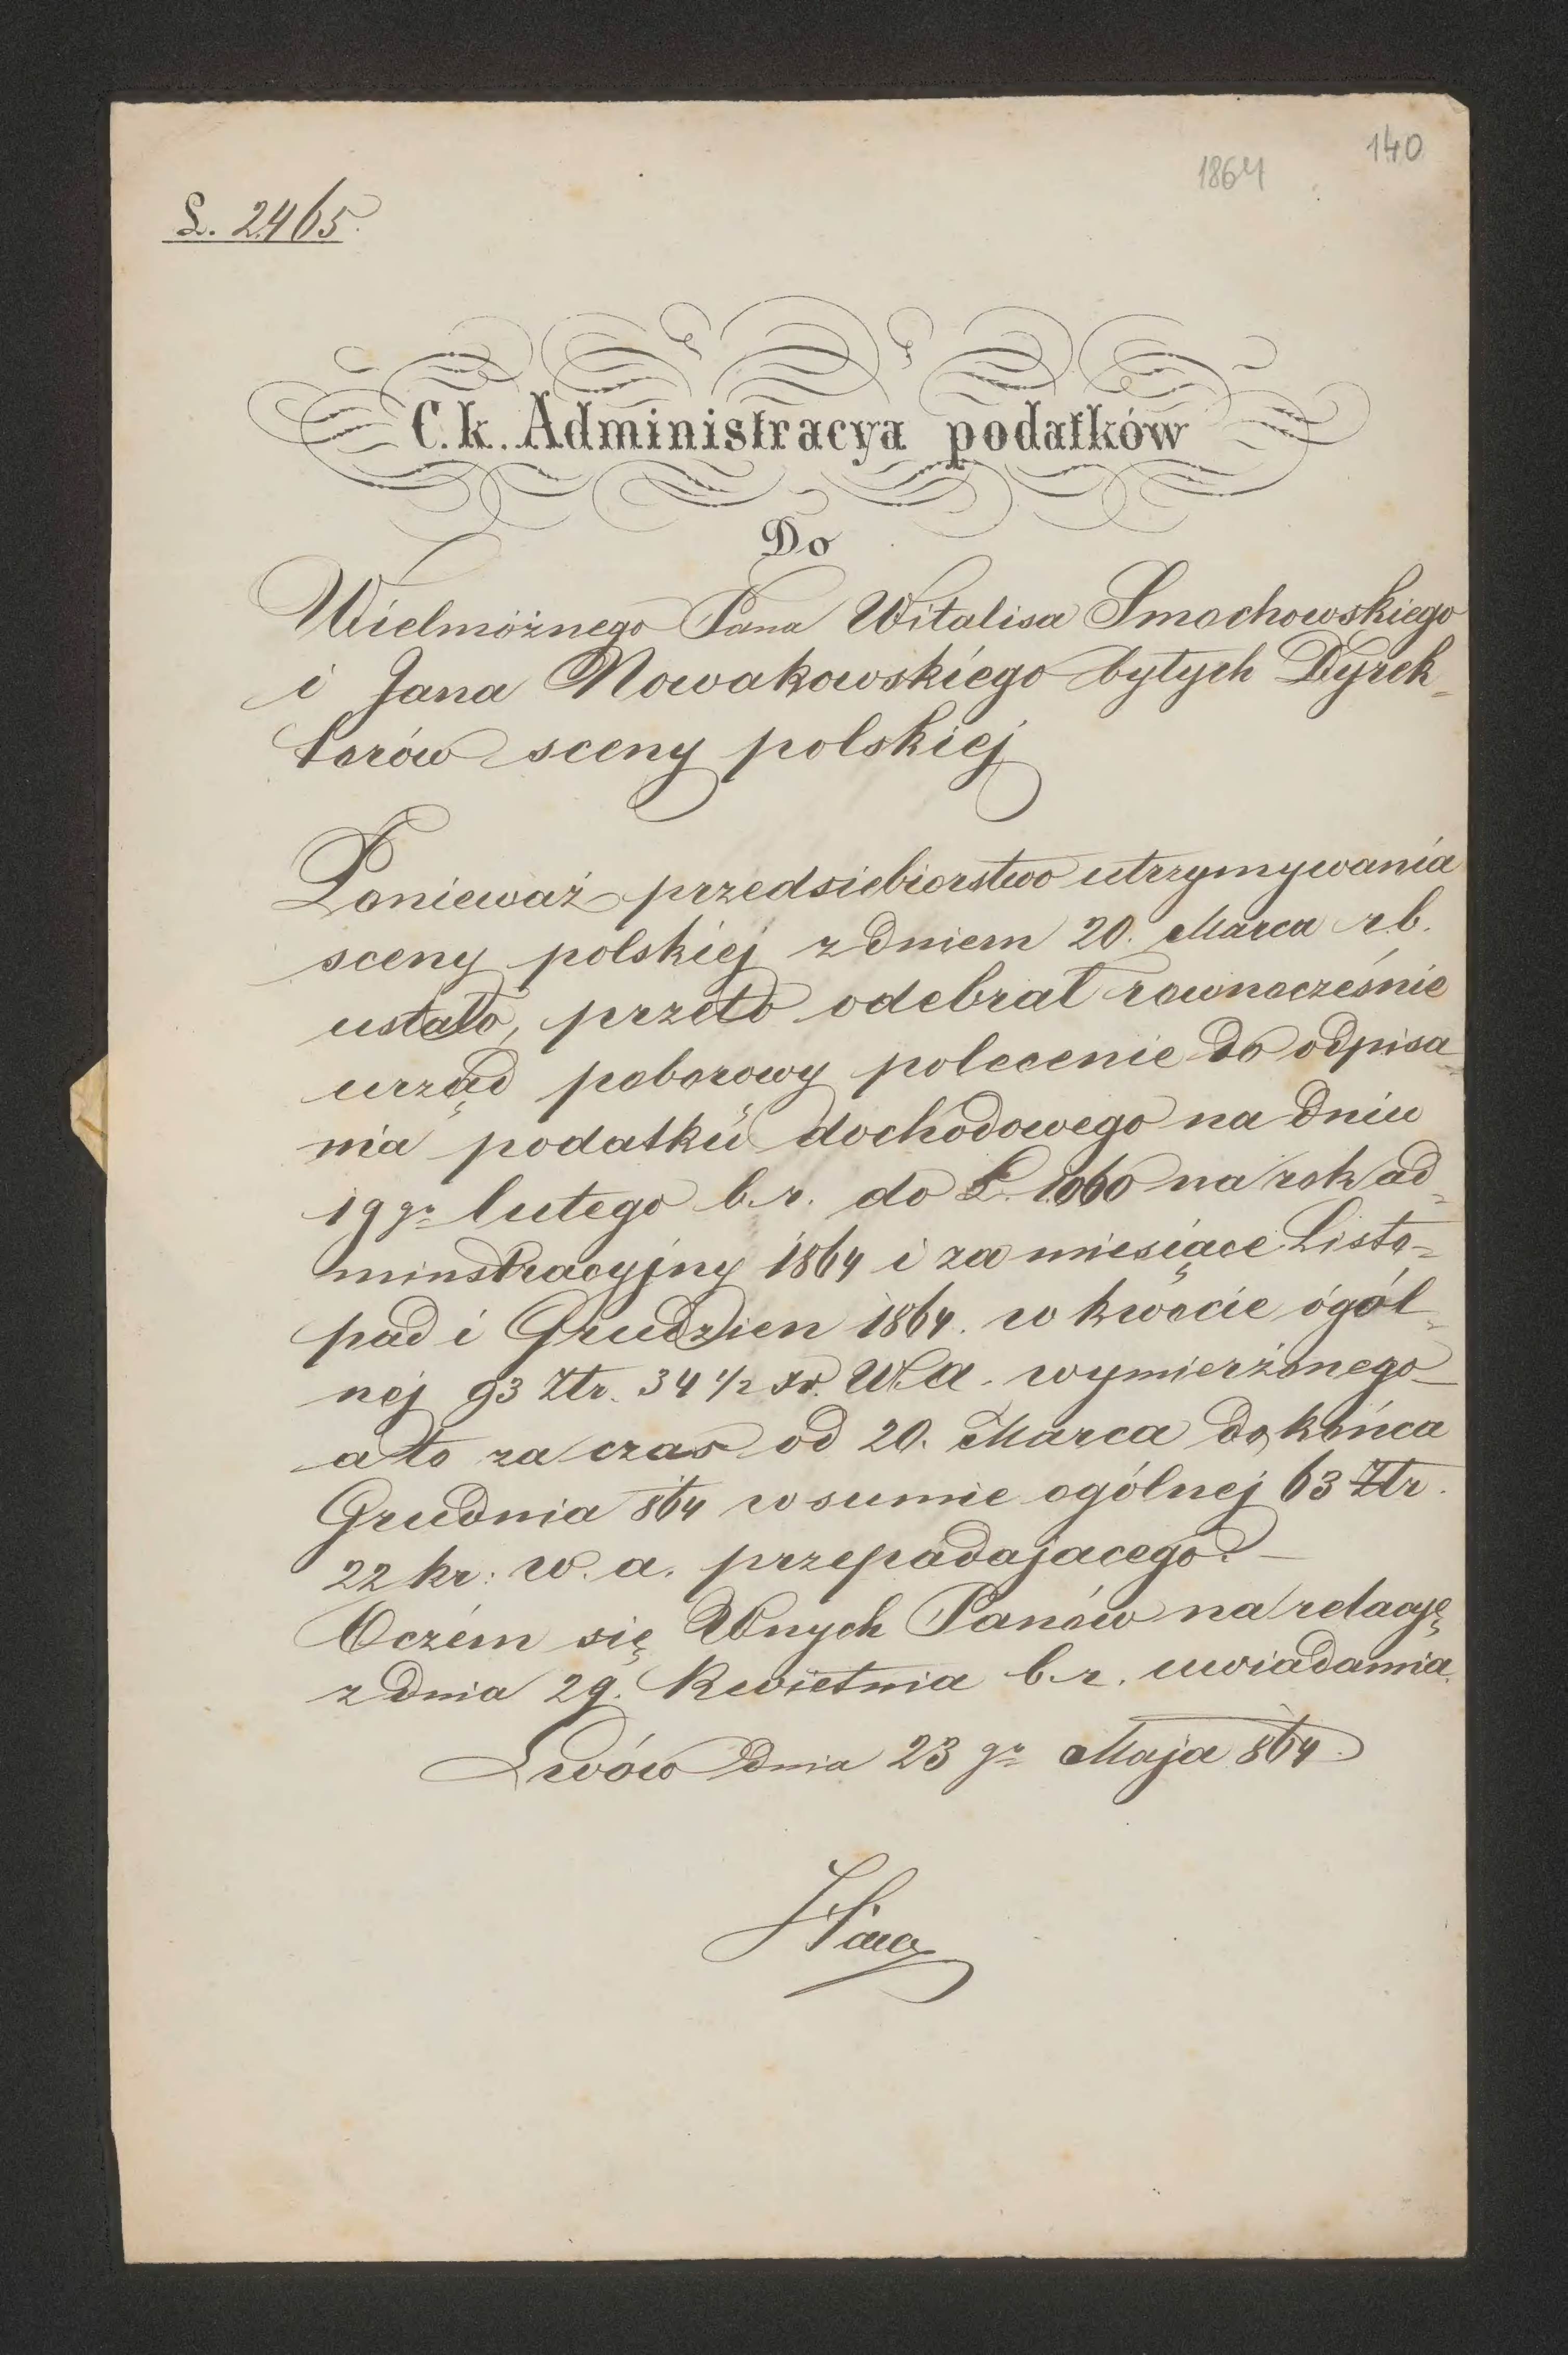 140
1864
L. 2465.
C. k. Administracya podatków
Do
Wielmożnego Pana Witalisa Smochowskiego
i Jana Nowakowskiego byłych Dyrek-
torów sceny polskiej
Ponieważ przedsiebiorstwo utrzymywania
sceny polskiej z dniem 20. Marca r.b.
ustało, przeto odebrał rownocześnie
urząd poborowy polecenie do odpisa-
nia podatku dochodowego na dniu
19go lutego b.r. do L. 1060 na rok ad-
minstracyjny 1864 i za miesiące Listo-
pad i Grudzien 1864. w kwocie ogól-
nej 93 Złr. 34 1/2 xr. W.A. wymierzonego
a to za czas od 20. Marca do końca
Grudnia 864 w sumie ogólnej 63 Złr.
22 kr: w. a. przepadajacego.
O czém się Wnych Panów na relacyę
z dnia 29. Kwietnia b.r. uwiadamia.
Lwów dnia 23go Maja 864.